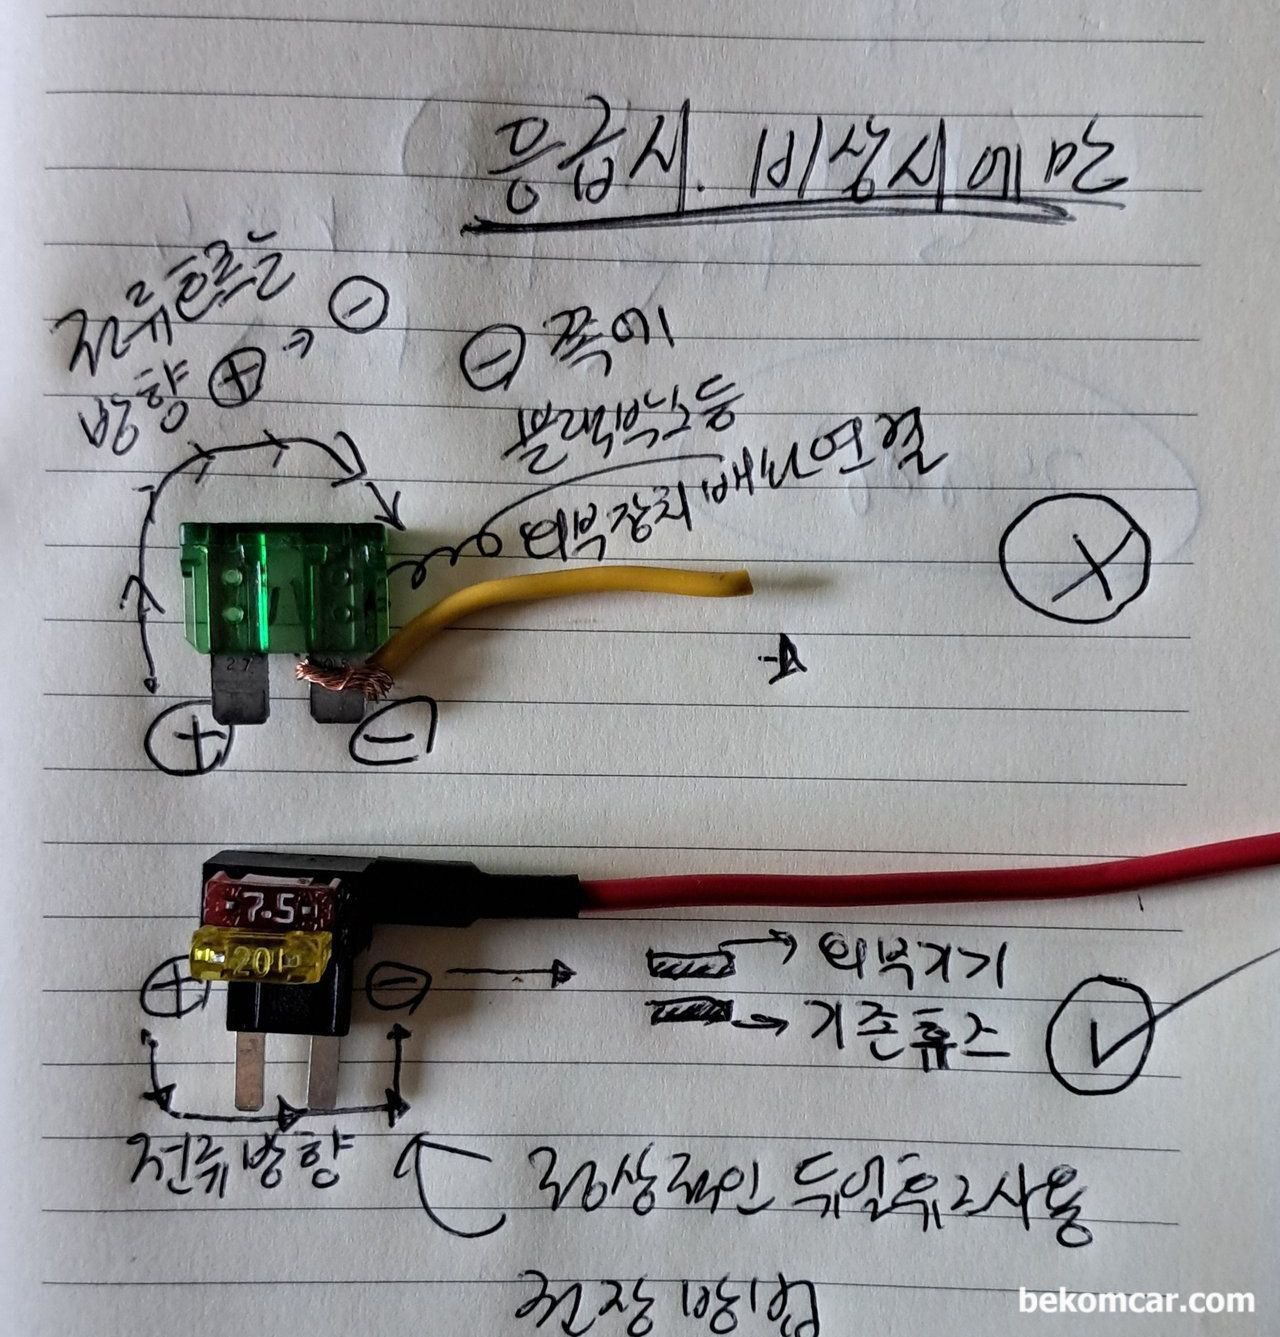 응급시. 비상시에만
전류흐르는
방향 ⊕ → ⊖
⊖ 쪽에
블랙박스등
외부장치 배선연결
X
27
⊕ ⊖
7.5
20
⊕ ⊖
→ 외부기기
→ 기존휴즈
전류방향
정상적인 듀얼휴즈사용
권장방법
bekomcar.com